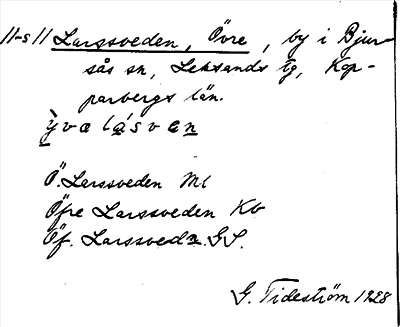 11-s11 Larssveden, Övre, by i Bjur-
sås sn, Leksands tg, Kop-
parbergs län.
ỳvœ lásvœn
Ö. Larssveden Ml
Öfre Larssveden Kb
Öf. Larssvedn. GS.
G. Tideström 1928